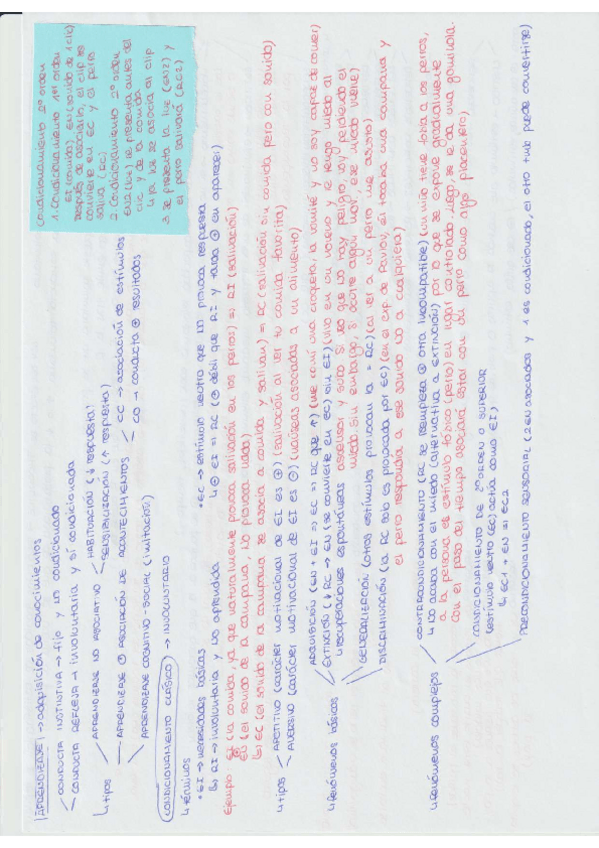 APRENDIZAJE → adquisición de conocimientos
CONDUCTA INSTINTIVA → fijo y no condicionado
CONDUCTA REFLEJA → involuntaria y sí condicionada
↳ tipos
APRENDIZAJE NO ASOCIATIVO
HABITUACIÓN (↓ respuesta)
SENSIBILIZACIÓN (↑ respuesta)
APRENDIZAJE ⊕ ASOCIACIÓN DE ACONTECIMIENTOS
CC → asociación de estímulos
CO → conducta ⊕ resultados
APRENDIZAJE COGNITIVO-SOCIAL (imitación)
CONDICIONAMIENTO CLÁSICO → INVOLUNTARIO
↳ términos
• EI → necesidades básicas
↳ RI → involuntaria y no aprendida
• EC → estímulo neutro que no provoca respuesta
↳ ⊕ EI = RC (⊕ débil que RI y tarda ⊕ en aparecer)
Ejemplo
EI (la comida, ya que naturalmente provoca salivación en los perros) = RI (salivación)
EN (el sonido de la campana, no provoca nada)
↳ EC (el sonido de la campana, se asocia a comida y salivan) = RC (salivación sin comida pero con sonido)
↳ tipos
APETITIVO (carácter motivacional de EI es ⊕) (salivación al ver tu comida favorita)
AVERSIVO (carácter motivacional de EI es ⊖) (náuseas asociadas a un alimento)
↳ fenómenos básicos
ADQUISICIÓN (EN + EI = EC = RC que ↑) (me comí una croqueta, la vomité y no soy capaz de comer)
EXTINCIÓN (↓ RC → EN (se convierte en EC) sin EI) (vivo en un noveno y le tengo miedo al
ascensor y subo si veo que no hay peligro, voy perdiendo el
miedo. Sin embargo, si ocurre algún move, ese miedo vuelve)
↳ recuperaciones espontáneas
GENERALIZACIÓN (otros estímulos provocan la = RC) (al ver a un perro me asusto)
DISCRIMINACIÓN (la RC solo es provocada por EC) (en el exp de Pavlov, él tocaba una campana y
el perro respondía a ese sonido no a cualquiera)
↳ fenómenos complejos
CONTRACONDICIONAMIENTO (RC se reemplaza ⊕ otra incompatible) (un niño tiene fobia a los perros,
↳ no acaba con el miedo (alternativa a EXTINCIÓN) por lo que se expone gradualmente
a la persona al estímulo fóbico (perro) en lugar controlado. Luego, se le da una gominola.
Con el paso del tiempo asociará estar con un perro como algo placentero)
CONDICIONAMIENTO DE 2º ORDEN O SUPERIOR
(estímulo neutro (EC) actúa como EI)
↳ EC1 + EN = EC2
PRECONDICIONAMIENTO SENSORIAL (2 EN asociados y 1 es condicionado, el otro tmb puede convertirse)
Condicionamiento 2º orden
1. Condicionamiento 1er orden
EI (comida), EN (sonido de 1 clic)
después de asociarlo, el clip se
convierte en EC y el perro
saliva (RC)
2. Condicionamiento 2º orden
EN2 (luz) se presenta antes del
clic y de la comida
↳ la luz se asocia al clip
3. Se presenta la luz (EN2) y
el perro salivará (RC2)